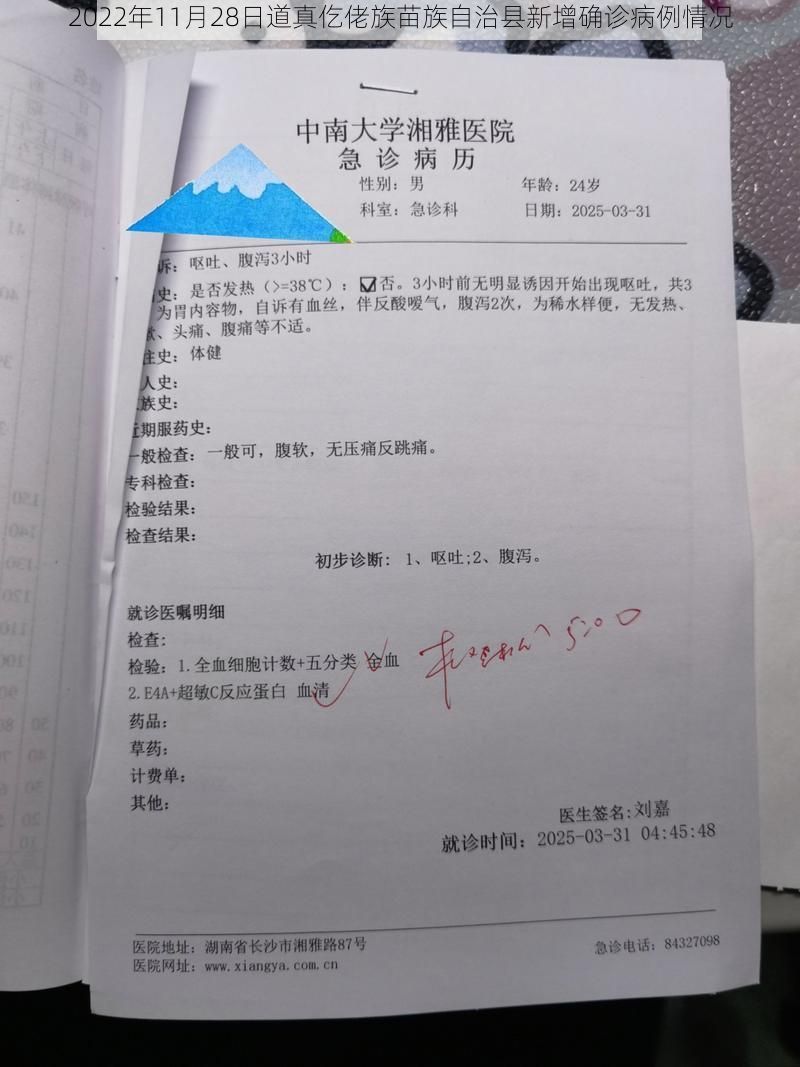 2022年11月28日道真仡佬族苗族自治县新增确诊病例情况
中南大学湘雅医院
急诊病历
性别：男 年龄：24岁
科室：急诊科 日期：2025-03-31
诉：呕吐、腹泻3小时
史：是否发热（>=38℃）：☑否。3小时前无明显诱因开始出现呕吐，共3
为胃内容物，自诉有血丝，伴反酸嗳气，腹泻2次，为稀水样便，无发热、
、头痛、腹痛等不适。
往史：体健
人史：
族史：
近期服药史：
一般检查：一般可，腹软，无压痛反跳痛。
专科检查：
检验结果：
检查结果：
初步诊断：1、呕吐;2、腹泻。
就诊医嘱明细
检查：
检验：1.全血细胞计数+五分类 全血
2.E4A+超敏C反应蛋白 血清
5:00
药品：
草药：
计费单：
其他：
医生签名:刘嘉
就诊时间：2025-03-31 04:45:48
医院地址：湖南省长沙市湘雅路87号 急诊电话：84327098
医院网址：www.xiangya.com.cn